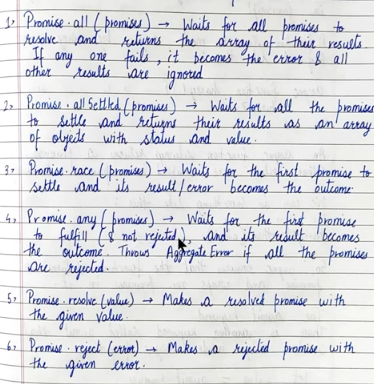 1> Promise.all (promises) → Waits for all promises to
resolve and returns the array of their results.
If any one fails, it becomes the error & all
other results are ignored
2> Promise.allSettled (promises) → Waits for all the promises
to settle and returns their results as an array
of objects with status and value.
3> Promise.race (promises) → Waits for the first promise to
settle and its result/error becomes the outcome
4> Promise.any (promises) → Waits for the first promise
to fulfill (& not rejected), and its result becomes
the outcome. Throws Aggregate Error if all the promises
are rejected.
5> Promise.resolve (value) → Makes a resolved promise with
the given value.
6> Promise.reject (error) → Makes a rejected promise with
the given error.